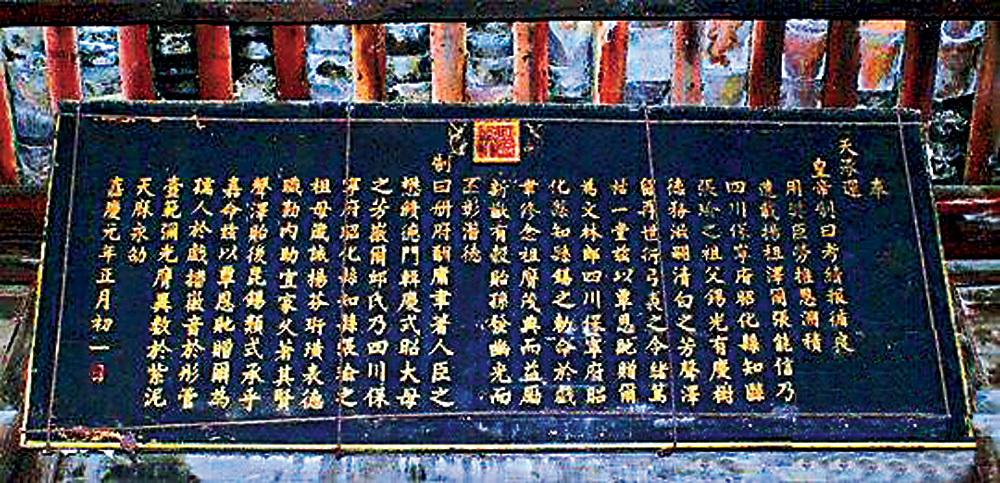 奉
天承運
皇帝制曰考績報循良
用獎臣勞推恩溯積
遺載揚祖澤爾張能信乃
四川保寧府昭化縣知縣
張瑜之祖父錫光有慶樹
德務滋嗣清白之芳聲澤
能再世衍弓裘之令緒篤
祜一堂兹以覃恩貤贈爾
為文林郎四川保寧府昭
化縣知縣錫之勅命於戲
聿修念祖膺茂典而益勵
新猷有穀貽孫發幽光而
丕彰潛德
制曰册府酬庸聿著人臣之
懋績德門輯慶式昭大母
之芳徽爾邱氏乃四川保
寧府昭化縣知縣張瑜之
祖母箴誡揚芬珩璜表德
職勤内助宜家久著其賢
聲澤貽後昆錫類式承乎
嘉命兹以覃恩貤贈爾為
孺人於戲播徽音於彤管
壼範彌光膺異數於紫泥
天庥永劭
嘉慶元年正月初一日